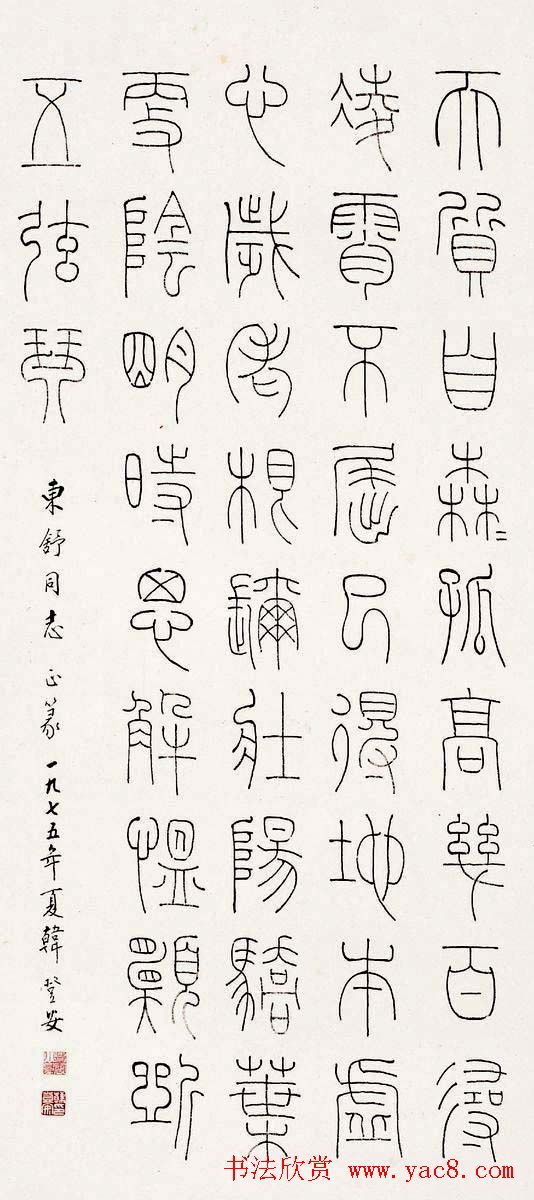 天質自森〻孤高幾百尋
凌霄不屈己得地本虛
心歲老根彌壯陽驕葉
更陰明時思解慍願斲
五弦琴
東舒同志正篆 一九七五年夏韓登安
书法欣赏 www.yac8.com